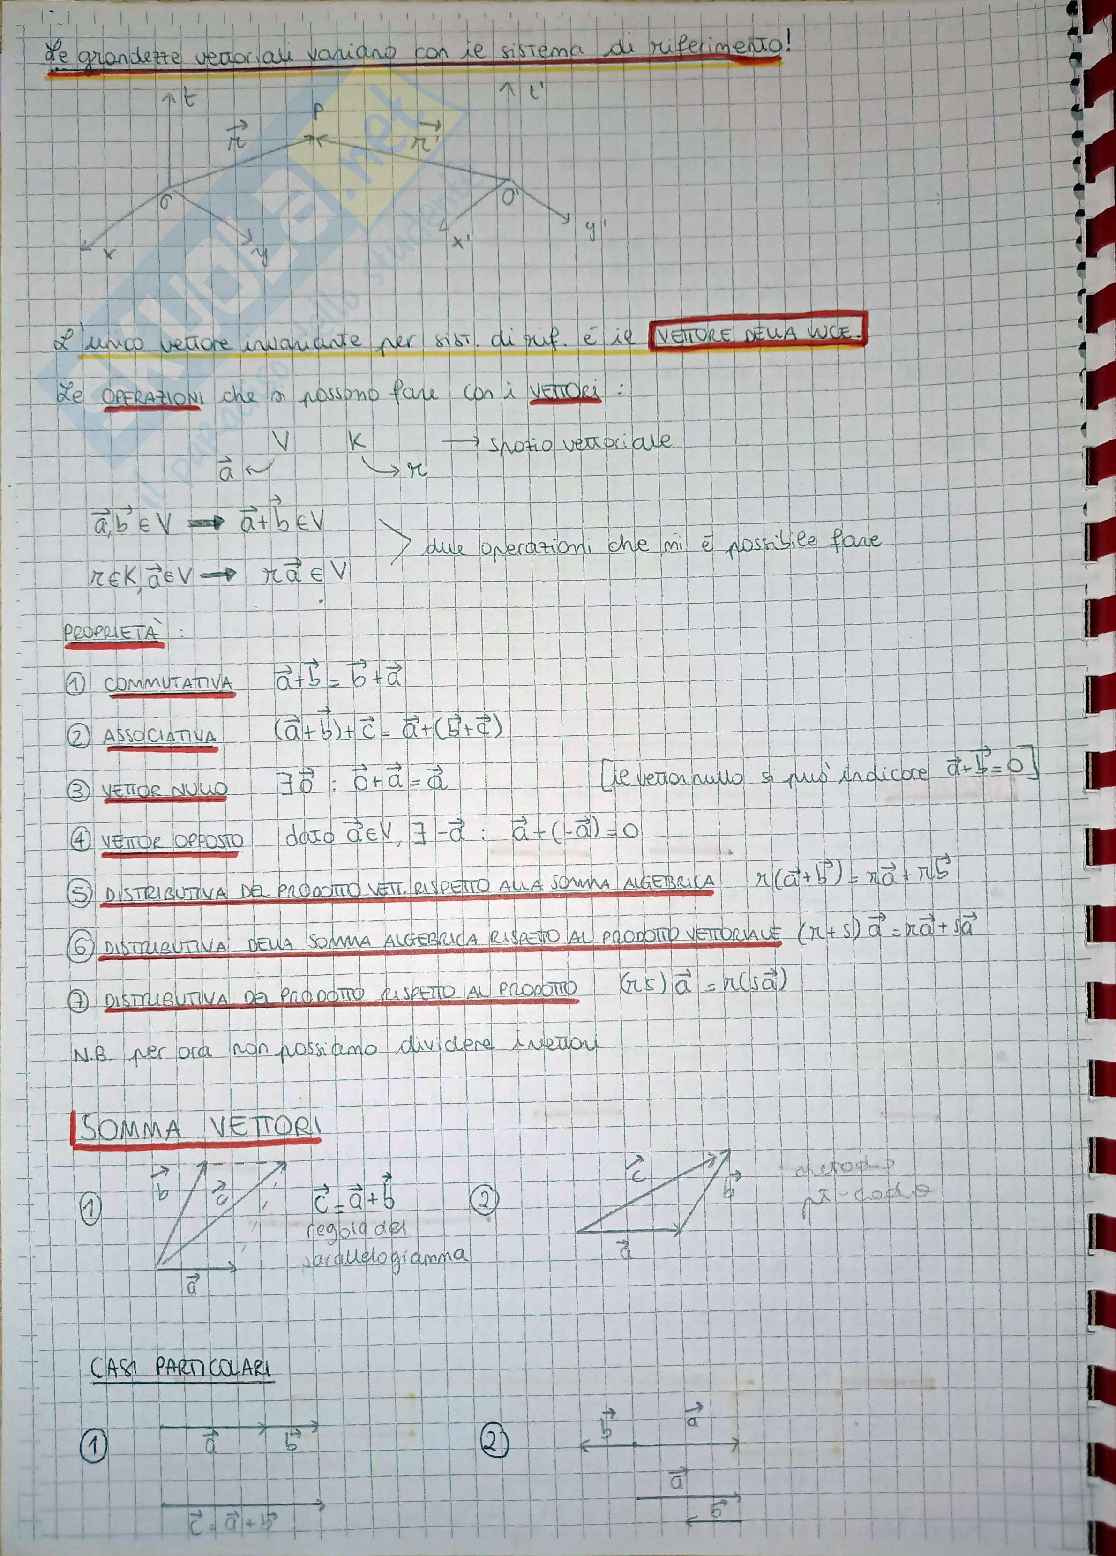 Le grandezze vettoriali variano con il sistema di riferimento!
t
P
t'
r⃗
r⃗'
O
O'
x
y
x'
y'
L'unico vettore invariante per sist. di rif. é il VETTORE DELLA LUCE.
Le OPERAZIONI che si possono fare con i VETTORI :
V K → spazio vettoriale
a⃗ r
a⃗, b⃗ ∈ V → a⃗+b⃗ ∈ V
due operazioni che mi é possibile fare
r∈K, a⃗∈V → r a⃗ ∈ V
PROPRIETÀ :
① COMMUTATIVA a⃗+b⃗ = b⃗+a⃗
② ASSOCIATIVA (a⃗+b⃗)+c⃗ = a⃗+(b⃗+c⃗)
③ VETTOR NULLO ∃ 0⃗ : 0⃗+a⃗ = a⃗ [il vettor nullo si può indicare a⃗-b⃗=0⃗]
④ VETTOR OPPOSTO dato a⃗∈V, ∃ -a⃗ : a⃗+(-a⃗)=0
⑤ DISTRIBUTIVA DEL PRODOTTO VETT. RISPETTO ALLA SOMMA ALGEBRICA r(a⃗+b⃗) = ra⃗ + rb⃗
⑥ DISTRIBUTIVA DELLA SOMMA ALGEBRICA RISPETTO AL PRODOTTO VETTORIALE (r+s) a⃗ = ra⃗+sa⃗
⑦ DISTRIBUTIVA DEL PRODOTTO RISPETTO AL PRODOTTO (rs) a⃗ = r(sa⃗)
N.B. per ora non possiamo dividere i vettori
SOMMA VETTORI
① b⃗ c⃗ a⃗
c⃗ = a⃗+b⃗
regola del
parallelogramma
② c⃗ b⃗ a⃗
metodo
CASI PARTICOLARI
① a⃗ b⃗
c⃗ = a⃗+b⃗
② b⃗ a⃗
a⃗
b⃗
skuola.net